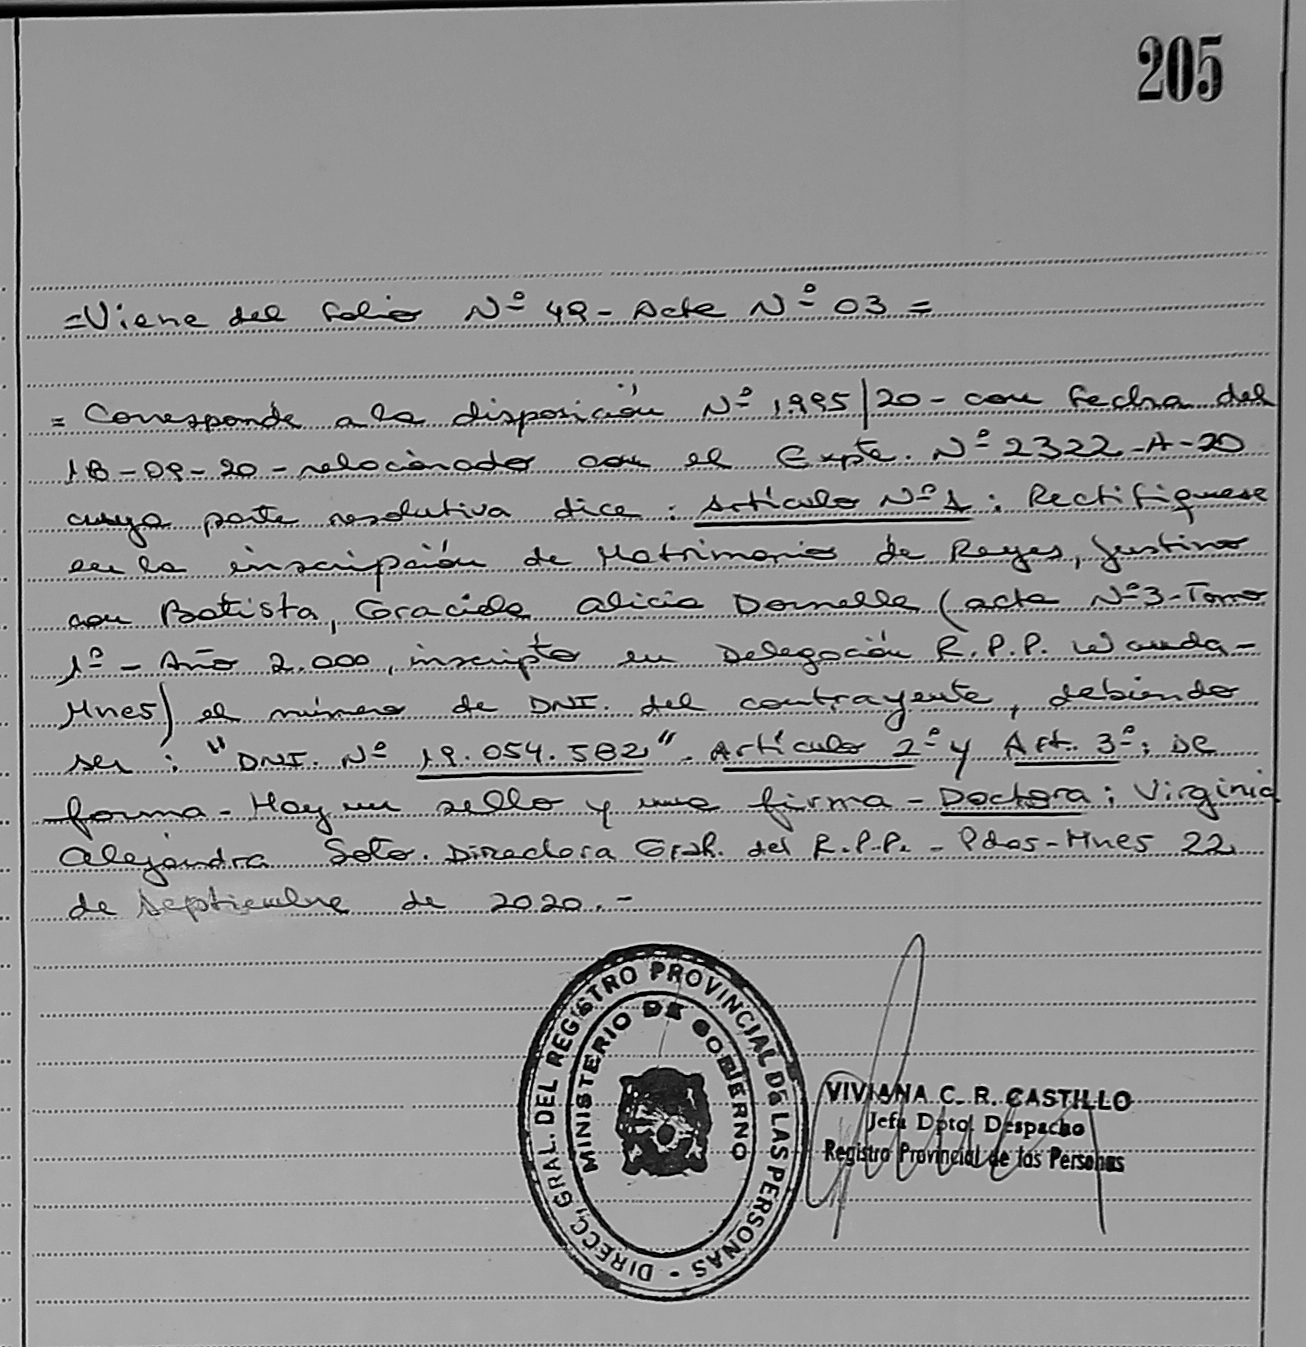 205
=Viene del folio Nº 49- Acta Nº 03=
= Corresponde a la disposición Nº 1995/20- con fecha del
18-09-20-relacionado con el Expte. Nº 2322-A-20
cuya parte resolutiva dice: Artículo Nº1: Rectifiquese
en la inscripción de Matrimonio de Reyes, Justino
con Batista, Graciela Alicia Dornelle (acta Nº3-Tomo
1º- Año 2.000, inscripto en Delegación R.P.P. Wanda-
Mnes) el número de DNI. del contrayente, debiendo
ser: "DNI. Nº 19.054.582". Artículo 2º y Art. 3º: De
forma- Hay un sello y una firma- Doctora: Virginia
Alejandra Soto. Directora Gral. del R.P.P. - Pdas-Mnes 22,
de septiembre de 2020.-
DIRECC. GRAL. DEL REGISTRO PROVINCIAL DE LAS PERSONAS -
MINISTERIO DE GOBIERNO
VIVIANA C. R. CASTILLO
Jefa Dpto. Despacho
Registro Provincial de las Personas